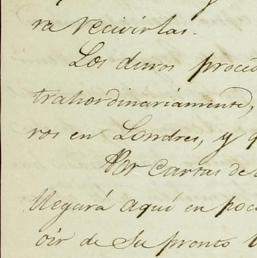 ra recivirlas.
Los duros proce
trahordinariamente,
ros en Londres, y q
Por cartas de
llegará aquí en poc
oir de Su pronto